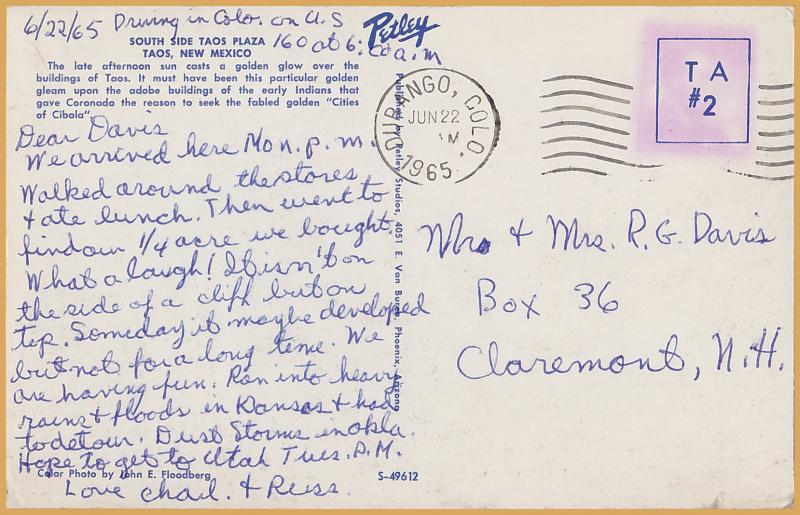 6/22/65 Driving in Colo. on U.S
160 at 6:00 a.m
Petley
SOUTH SIDE TAOS PLAZA
TAOS, NEW MEXICO
The late afternoon sun casts a golden glow over the
buildings of Taos. It must have been this particular golden
gleam upon the adobe buildings of the early Indians that
gave Coronado the reason to seek the fabled golden "Cities
of Cibola".
Dear Davis
We arrived here Mon. p.m.
Walked around the stores
+ ate lunch. Then went to
find our 1/4 acre we bought.
What a laugh! It isn't on
the side of a cliff but on
top. Someday it maybe developed
but not for a long time. We
are having fun. Ran into heavy
rains & floods in Kansas & had
to detour. Dust Storms in Okla.
Hope to get to Utah Tues. P.M.
Love Chad. & Russ.
Color Photo by John E. Floodberg
S-49612
Published by Petley Studios, 4051 E. Van Buren, Phoenix, Arizona
DURANGO, COLO.
JUN 22
M
1965
T A
#2
Mr. & Mrs. R.G. Davis
Box 36
Claremont, N.H.